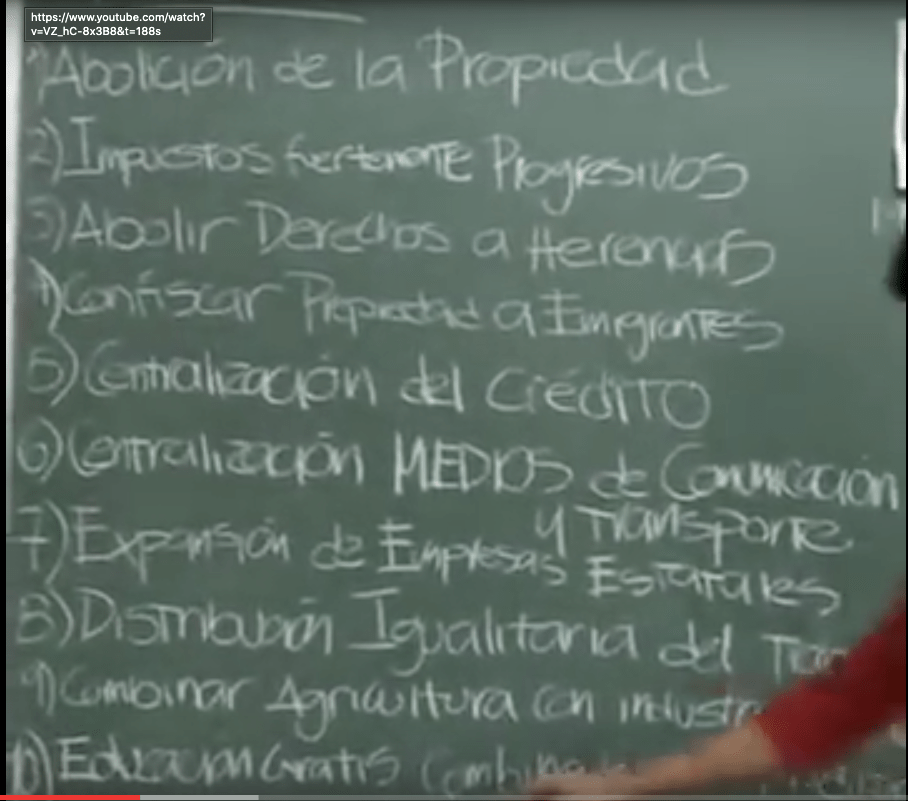 https://www.youtube.com/watch?
v=VZ_hC-8x3B8&t=188s
1) Abolición de la Propiedad
2) Impuestos fuertemente Progresivos
3) Abolir Derechos a Herencias
4) Confiscar Propiedad a Emigrantes
5) Centralización del Crédito
6) Centralización MEDIOS de Comunicación
y Transporte
7) Expansión de Empresas Estatales
8) Distribución Igualitaria del
9) Combinar Agricultura con
10) Educación Gratis